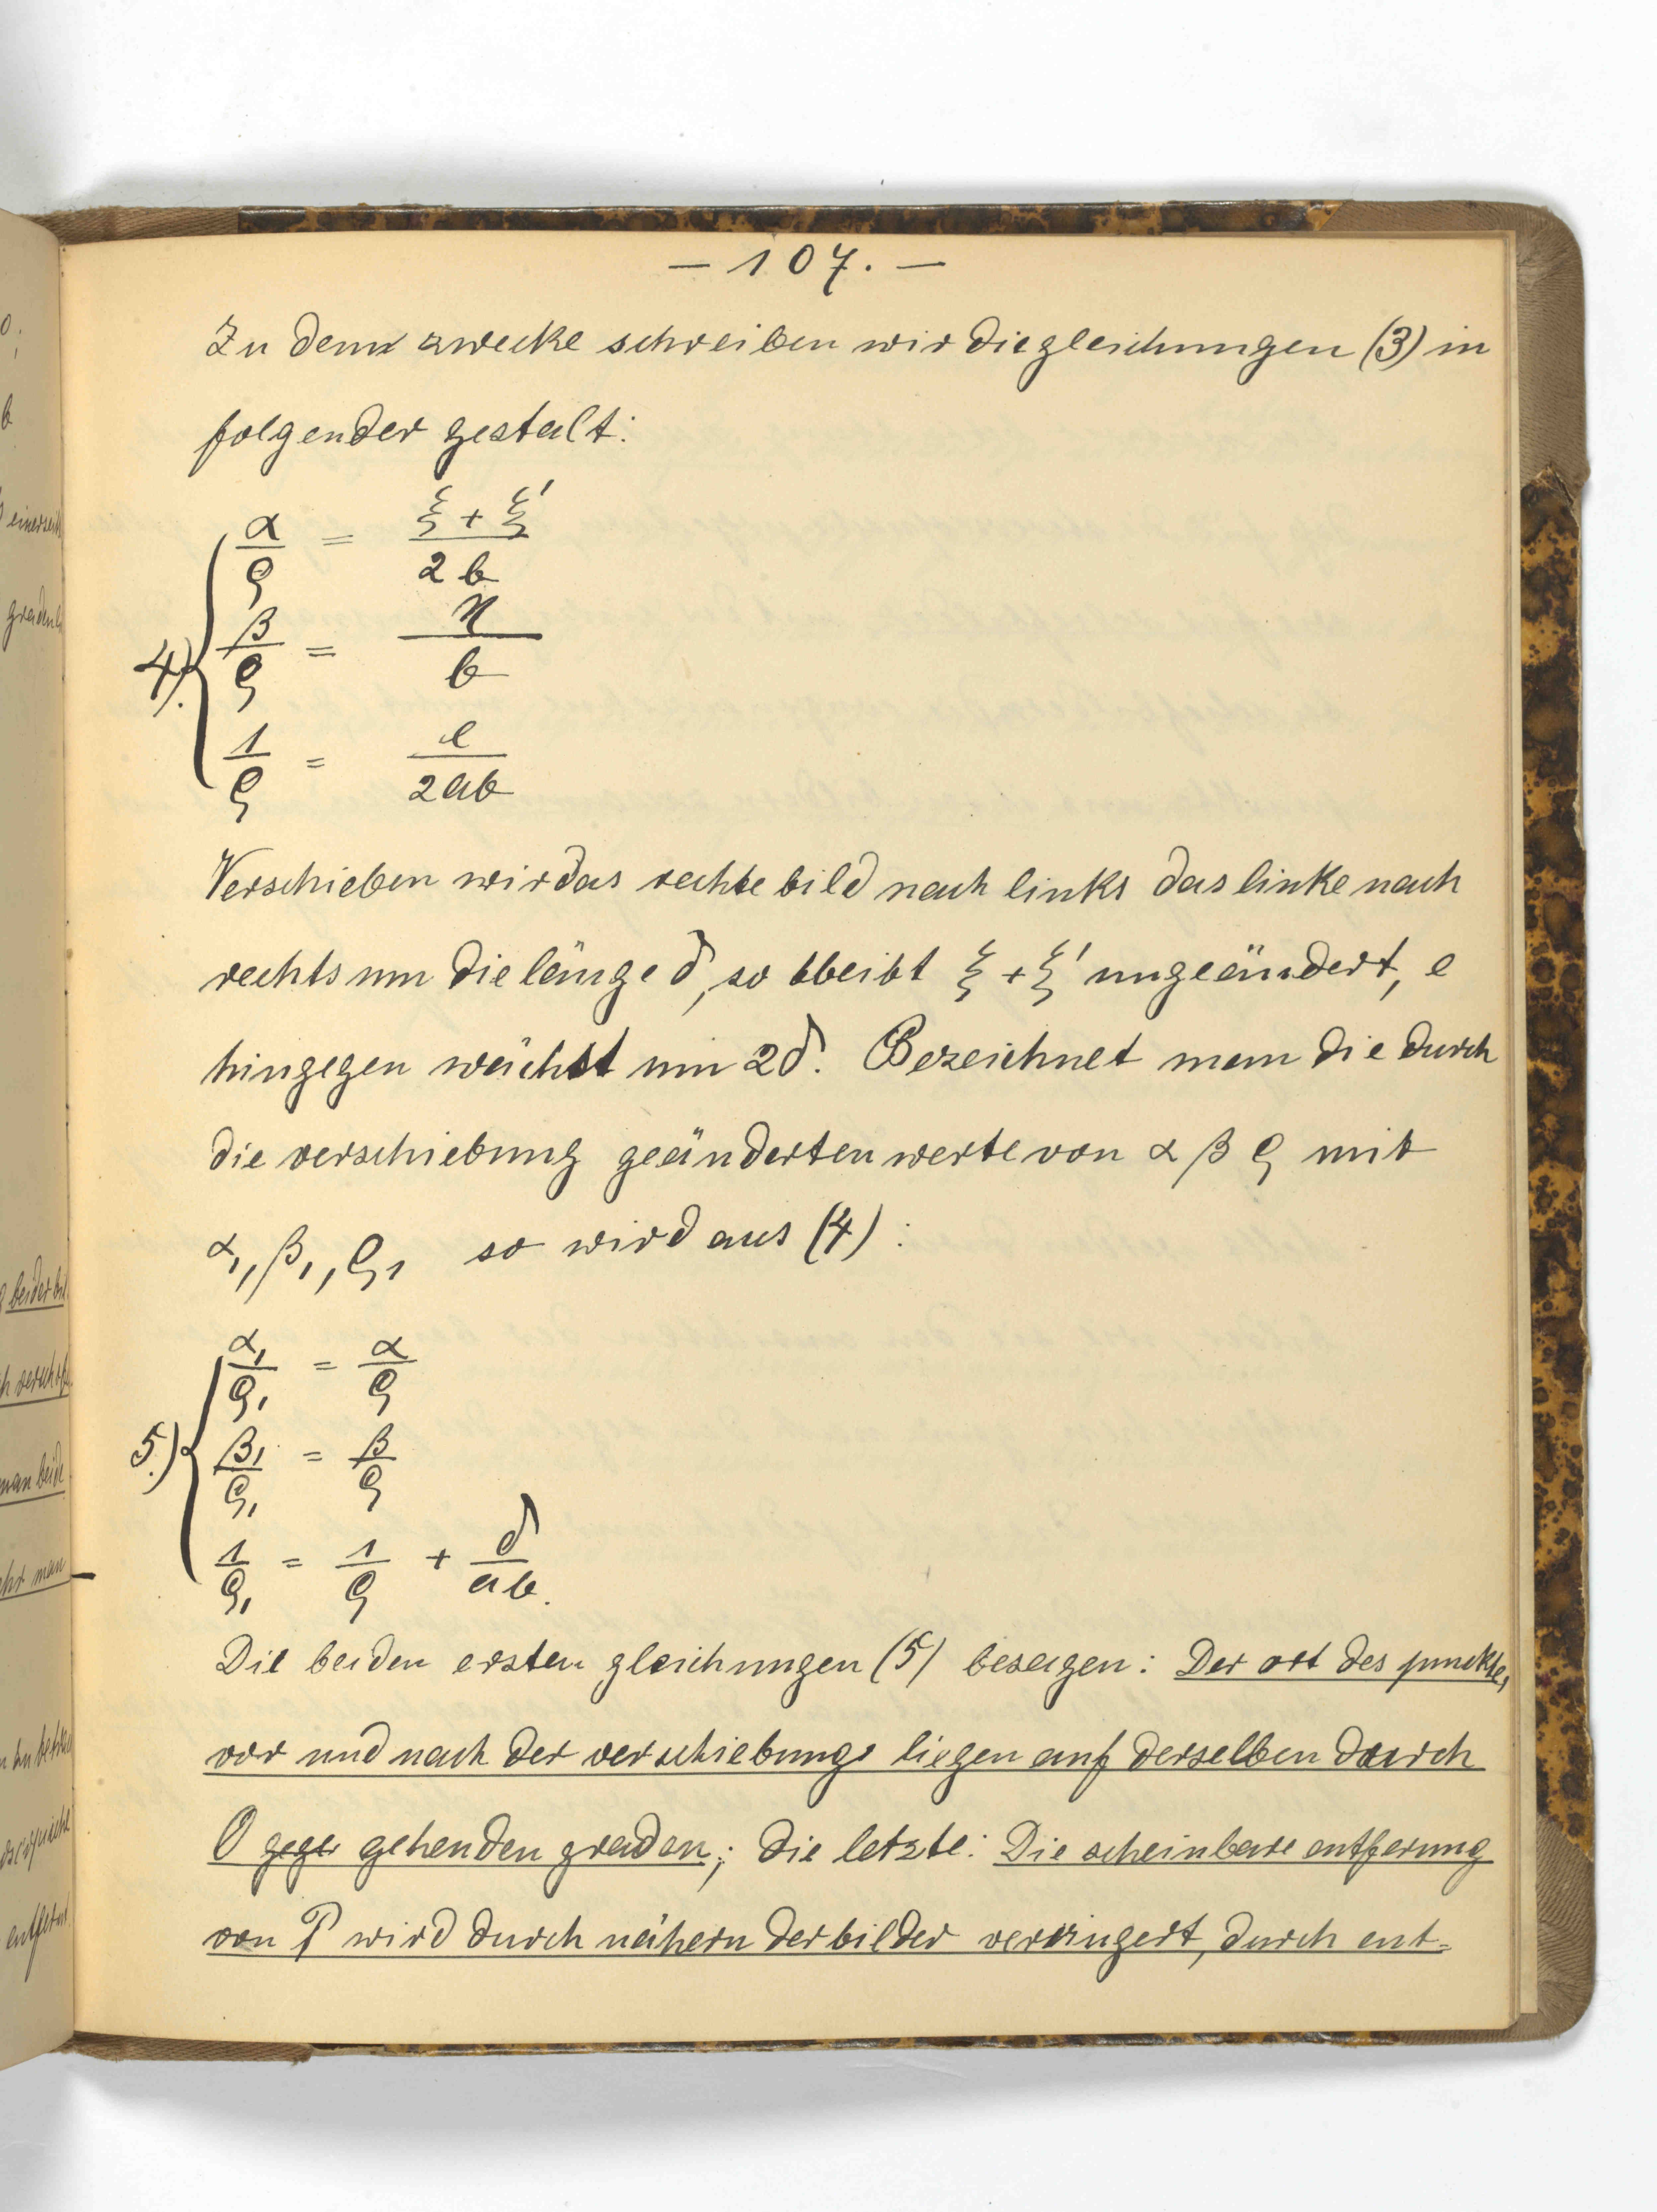 — 107. —
Zu dem zwecke schreiben wir die gleichungen (3) in
folgender gestalt:
4.) { α/ρ = (ξ + ξ')/2b
β/ρ = η/b
1/ρ = e/2ab
Verschieben wir das rechte bild nach links das linke nach
rechts um die länge δ, so bleibt ξ + ξ' ungeändert, e
hingegen wächst um 2δ. Bezeichnet man die durch
die verschiebung geänderten werte von α β ρ mit
α₁, β₁, ρ₁ so wird aus (4):
5.) { α₁/ρ₁ = α/ρ
β₁/ρ₁ = β/ρ
1/ρ₁ = 1/ρ + δ/ab.
Die beiden ersten gleichungen (5) besagen: Der ort des punckts,
vor und nach der verschiebung liegen auf derselben durch
O gege gehenden graden; die letzte: Die scheinbare entferung
von P wird durch nähern der bilder verringert, durch ent-
einerseits
graden
beider bil
man beide
ehr man
entfernt